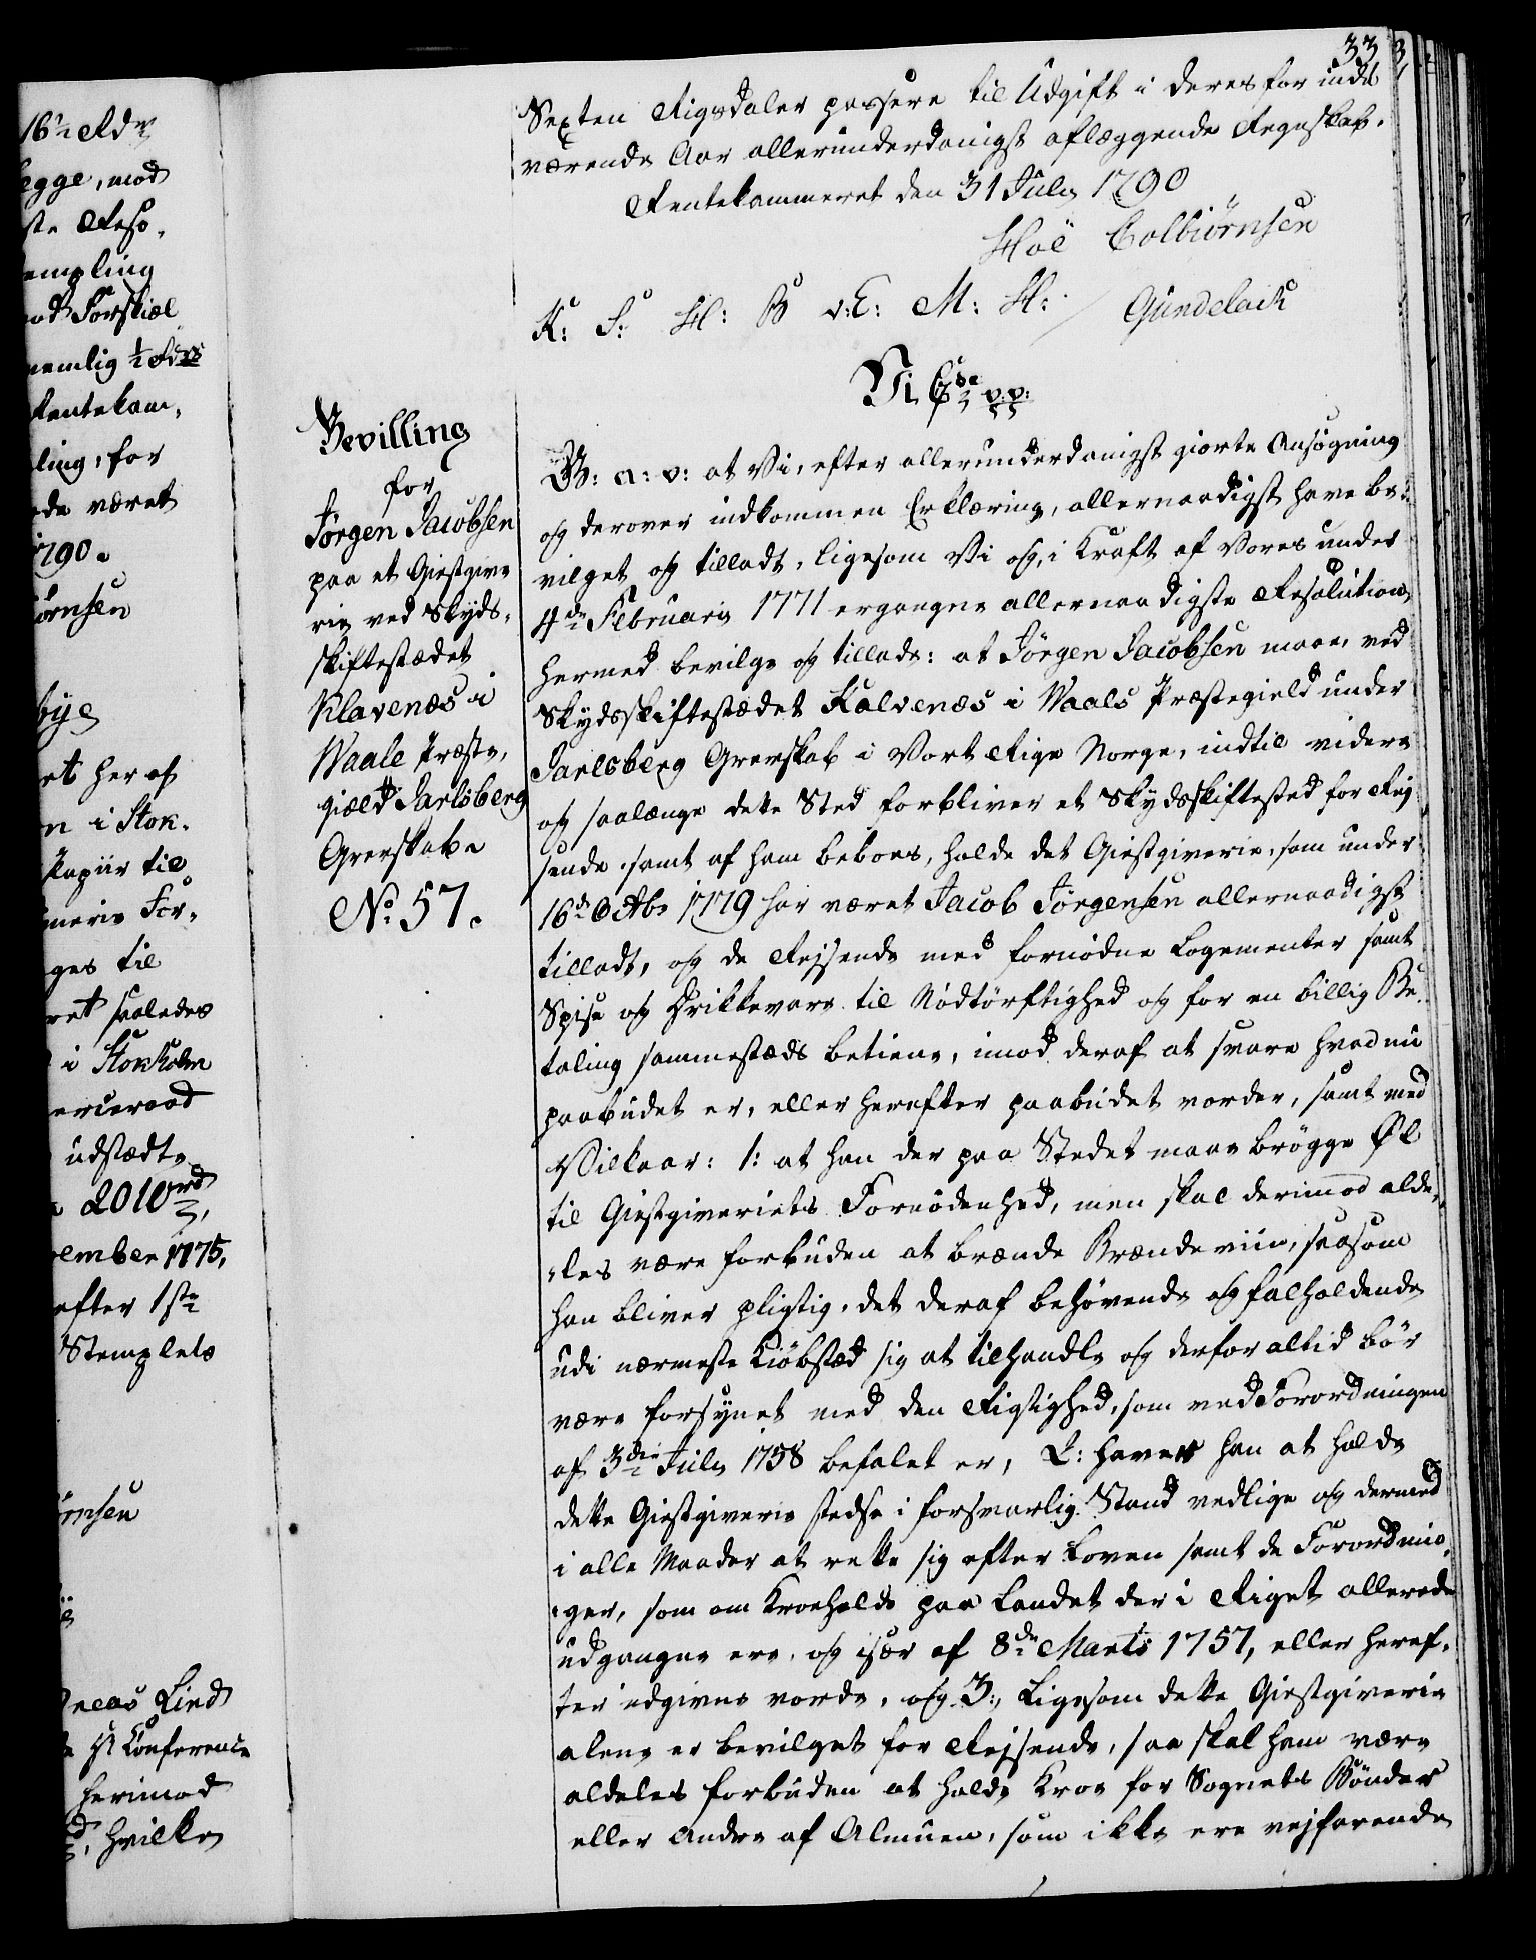 16½ Rdr
egge, mod
ste Reso-
empling
od Forskiæl
nemlig ½ Rdr
Rentekam,
ling, for
de været
1790.
örnsen
bye
et her af
n i Stok-
Papiir til
merie For-
ges til
ret saaledes
i Stokholm
erceraad
udstædte
2010rd,
vember 1775,
efter 1ste
Stemplets
örnsen
neas Lind
Conference
herimod
, hvilke
33
Sexten Rigsdaler passere til Udgift i deres for inde
værende Aar allerunderdanigst aflæggende Regnskab.
Rentekammeret den 31 July 1790
Hoë Colbiörnsen
K: S: H: B v:E: M: H: / Gündelach
Vi C 7de p.p:
Bevilling
for
Jörgen Jacobsen
paa et Giestgive
rie ved Skyds-
skiftestædet
Klavenæs i
Waale Præste,
giæld Jarlsberg
Grevskab.
No 57.
G: a: v: at Vi, efter allerunderdanigst giorte Ansøgning
og derover indkommen Erklæring, allernaadigst have be-
vilget og tilladt, ligesom Vi og, i Kraft af Vores under
4de Februarii 1771 ergangne allernaadigste Resolution,
hermed bevilge og tillade: at Jörgen Jacobsen maae, ved
Skydsskiftestædet Kalvenæs i Waals Præstegield under
Jarlsberg Grevskab i Vort Rige Norge, indtil videre
og saalænge dette Sted forbliver et Skydsskiftested for Rej
sende, samt af ham beboes, holde det Giestgiverie, som under
16de Octbr 1779 har været Jacob Jörgensen allernaadigst
tilladt, og de Rejsende med fornödne Logementer samt
Spise og Drikkevare til Nödtörftighed og for en billig Be-
taling sammestæds betiene, imod deraf at svare hvad nu
paabudet er, eller herefter paabudet vorder, samt med
Vilkaar: 1: at han der paa Stedet maae brögge Øl
til Giestgiveriets Fornödenhed, men skal derimod alde,
,les være forbuden at brænde Brændeviin, saasom
han bliver pligtig, det deraf behövende og falholdende
udi nærmeste Kiöbstæd sig at tilhandle og derfor altid bör
være forsynet med den Rigtighed, som ved Forordningen
af 3die July 1758 befalet er, 2: haver han at holde
dette Giestgiverie stedse i forsvarlig Stand vedlige og dermed
i alle Maader at rette sig efter Loven samt de Forordnin,
,ger, som om Kroehold paa Landet der i Riget allerede
udgangne ere, og især af 8de Marti 1757, eller heref-
ter udgivne vorde, og 3:, Ligesom dette Giestgiverie
alene er bevilget for Rejsende, saa skal ham være
aldeles forbuden at holde Kroe for Sognets Bönder
eller Andre af Almuen, som ikke ere vejfarende